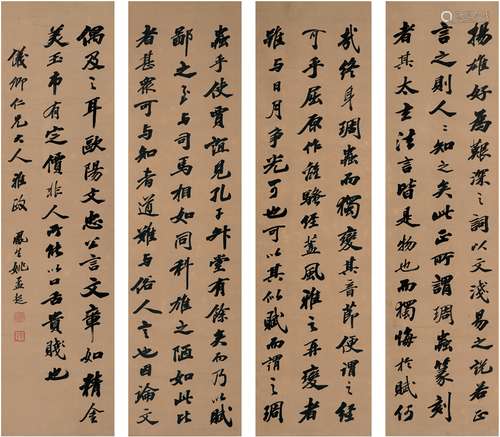 揚雄好為艱深之辞以文淺易之說若正
言之則人〻知之矣此正所謂琱蟲篆刻
者其太玄法言皆是物也而獨悔於賦何
哉終身琱蟲而獨變其音節便謂之經
可乎屈原作離騷經蓋風雅之再變者
雖与日月爭光可也可以其似賦而謂之琱
蟲乎使賈誼見孔子升堂有餘矣而乃以賦
鄙之至与司馬相如同科雄之陋如此比
者甚衆可与知者道難与俗人言也因論文
偶及之耳歐陽文忠公言文章如精金
美玉市有定價非人所能以口舌貴賤也
儀卿仁兄大人雅政 鳳生姚孟起